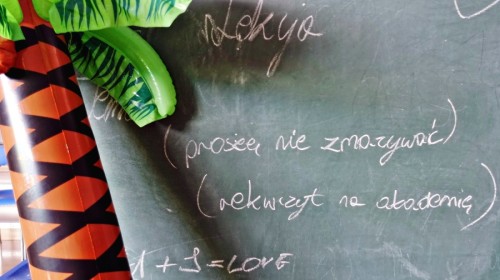 Lekcja
(proszę nie zmazywać)
(rekwizyt na akademię)
+ J = LOVE